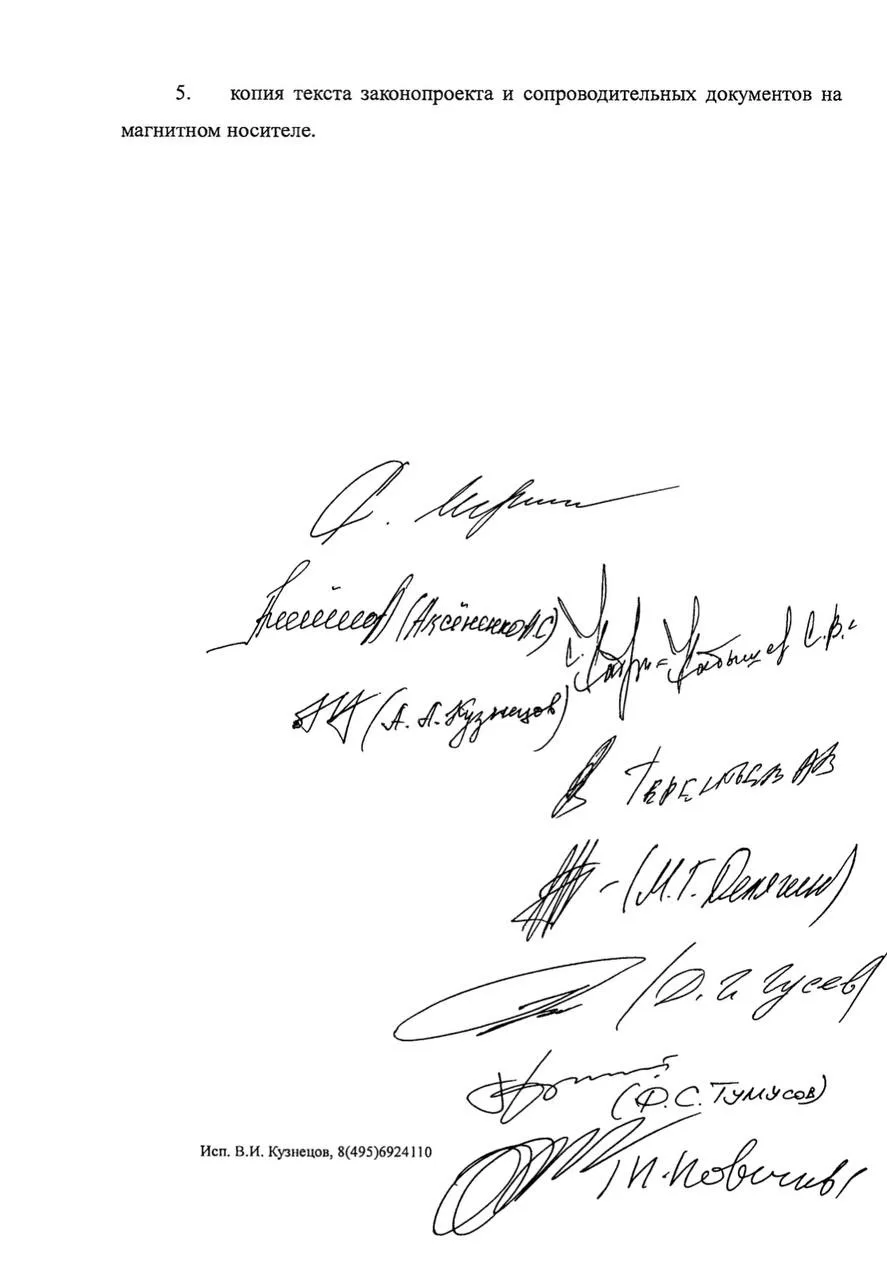 5. копия текста законопроекта и сопроводительных документов на
магнитном носителе.
(Аксёненко А.С)
Кабышев С.В.
(А. А. Кузнецов)
Терентьев АВ
(М.Г. Делягин)
(Д. Г. Гусев)
(Ф.С. Тумусов)
Исп. В.И. Кузнецов, 8(495)6924110